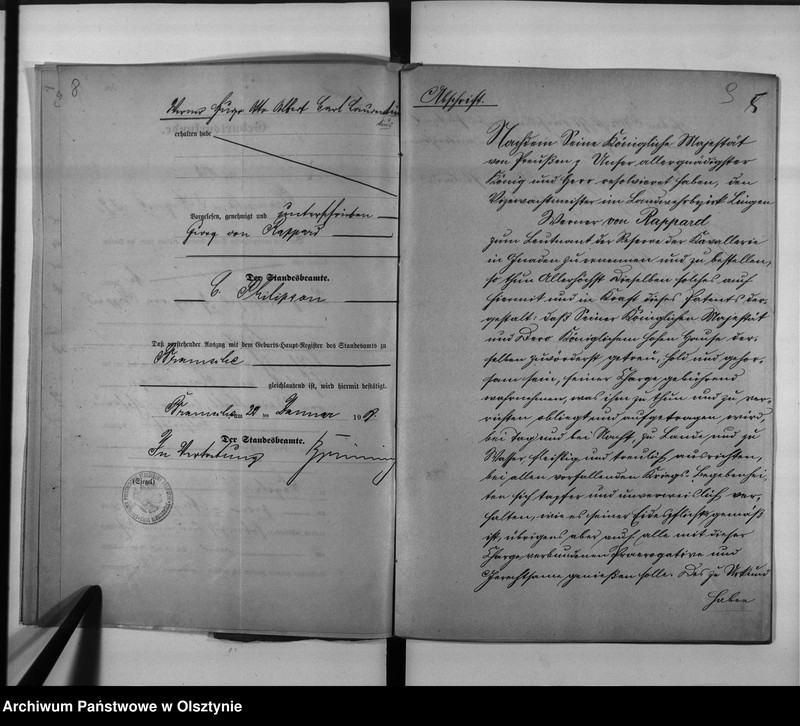 8
Werner Hugo Otto Albert Carl Laurentius
erhalten habe
Vorgelesen, genehmigt und unterschrieben
Georg von Rappard
Der Standesbeamte.
C. Philipson
Daß vorstehender Auszug mit dem Geburts-Haupt-Register des Standesamts zu
Bramsche
gleichlautend ist, wird hiermit bestätigt.
Bramsche am 20 ten Januar 19
Der Standesbeamte.
In Vertretung
(Siegel)
Abschrift.
9
8
Nachdem Seine Königliche Majestät
von Preußen p Unser allergnädigster
König und Herr resolvieret haben, den
Vizewachtmeister im Landwehrbezirk Lingen
Werner von Rappard
zum Leutnant der Reserve der Kavallerie
in Gnaden zu ernennen und zu bestellen,
so thun Allerhöchst Dieselben solches auch
hiermit und in Kraft dieses Patents der-
gestalt: daß Seiner Königlichen Majestät
und Dero Königlichem Hohen Hause der-
selben zuvörderst getreu, hold und gehor-
sam sein, seiner Charge gebührend
wahrnehmen, was ihm zu thun und zu ver-
richten obliegt und aufgetragen wird,
bei Tag und bei Nacht, zu Lande und zu
Wasser fleißig und treulich ausrichten,
bei allen vorfallenden Kriegs-Begebenhei-
ten sich tapfer und unverweislich ver-
halten, wie es seiner Eidespflicht gemäß
ist, übrigens aber auch alle mit dieser
Charge verbundenen Praerogative und
Gerechtsame genießen solle. Des zu Urkund
haben
Archiwum Państwowe w Olsztynie